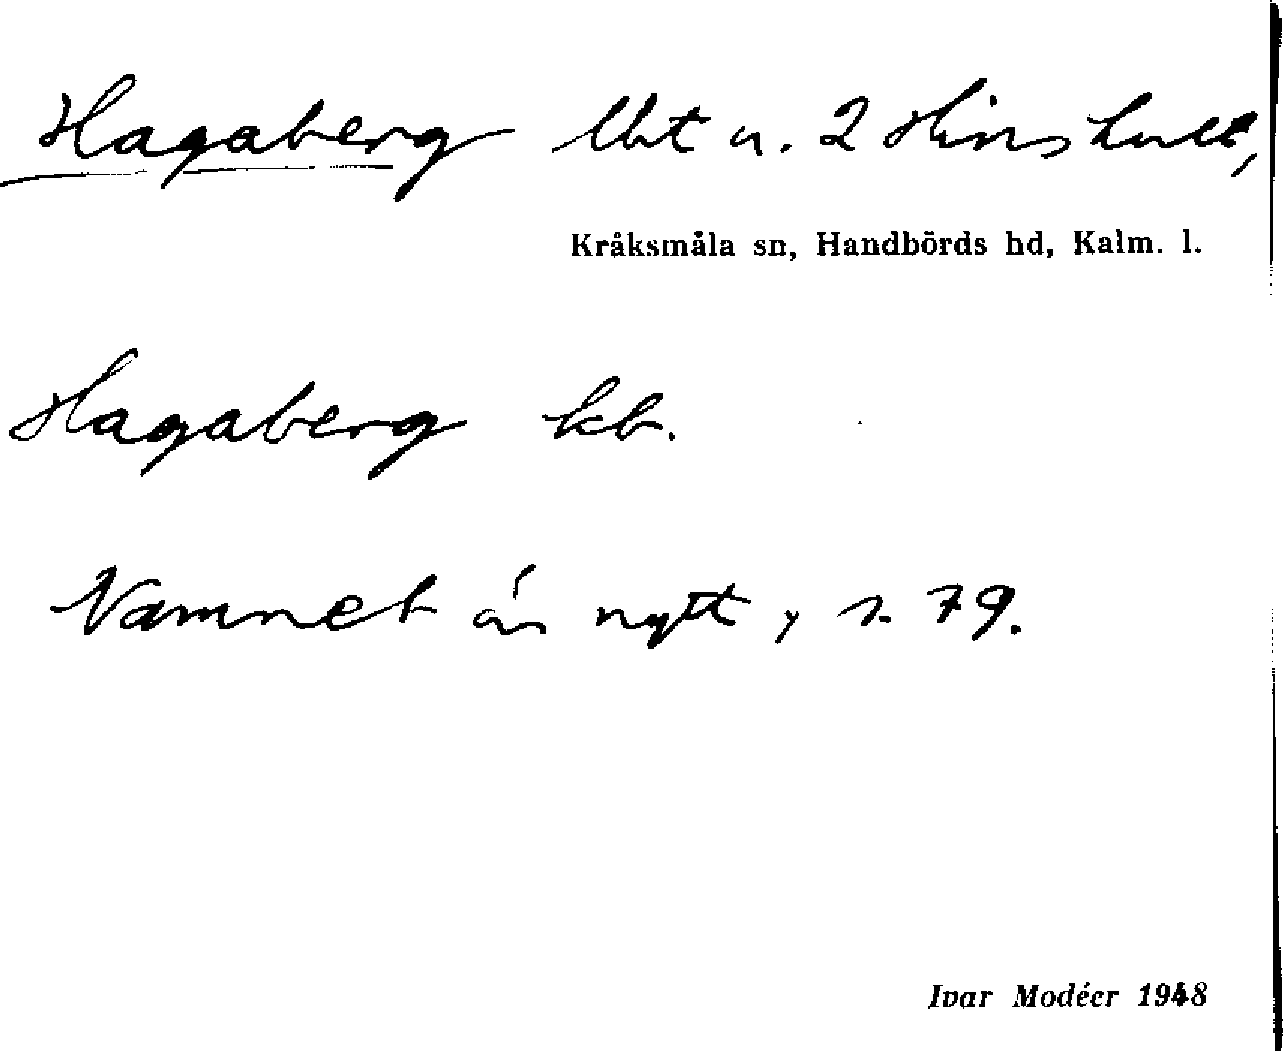 Hagaberg lht u. 2 Hinshult,
Kråksmåla sn, Handbörds hd, Kalm. l.
Hagaberg kb.
Namnet är nytt, s. 79.
Ivar Modéer 1948